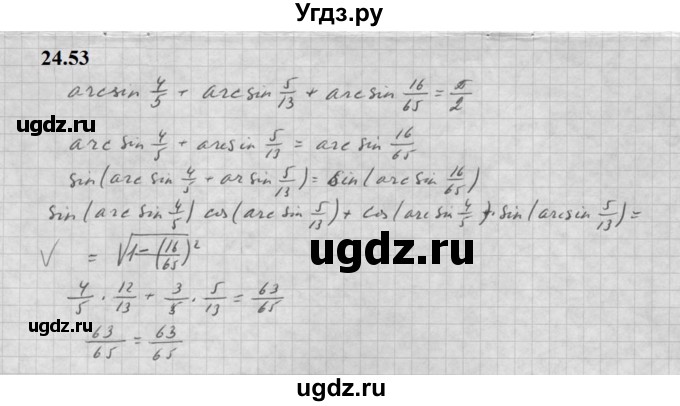 Угдз.ру
24.53
arcsin 4/5 + arcsin 5/13 + arcsin 16/65 = π/2
ugdz.ru
ugdz.ru
arcsin 4/5 + arcsin 5/13 = arcsin 16/65
sin(arcsin 4/5 + arsin 5/13) = sin(arcsin 16/65)
sin(arcsin 4/5) cos(arcsin 5/13) + cos(arcsin 4/5) · sin(arcsin 5/13) =
ugdz.ru
√ = √1-(16/65)²
4/5 · 12/13 + 3/5 · 5/13 = 63/65
ugdz.ru
ugdz.ru
63/65 = 63/65
ugdz.ru